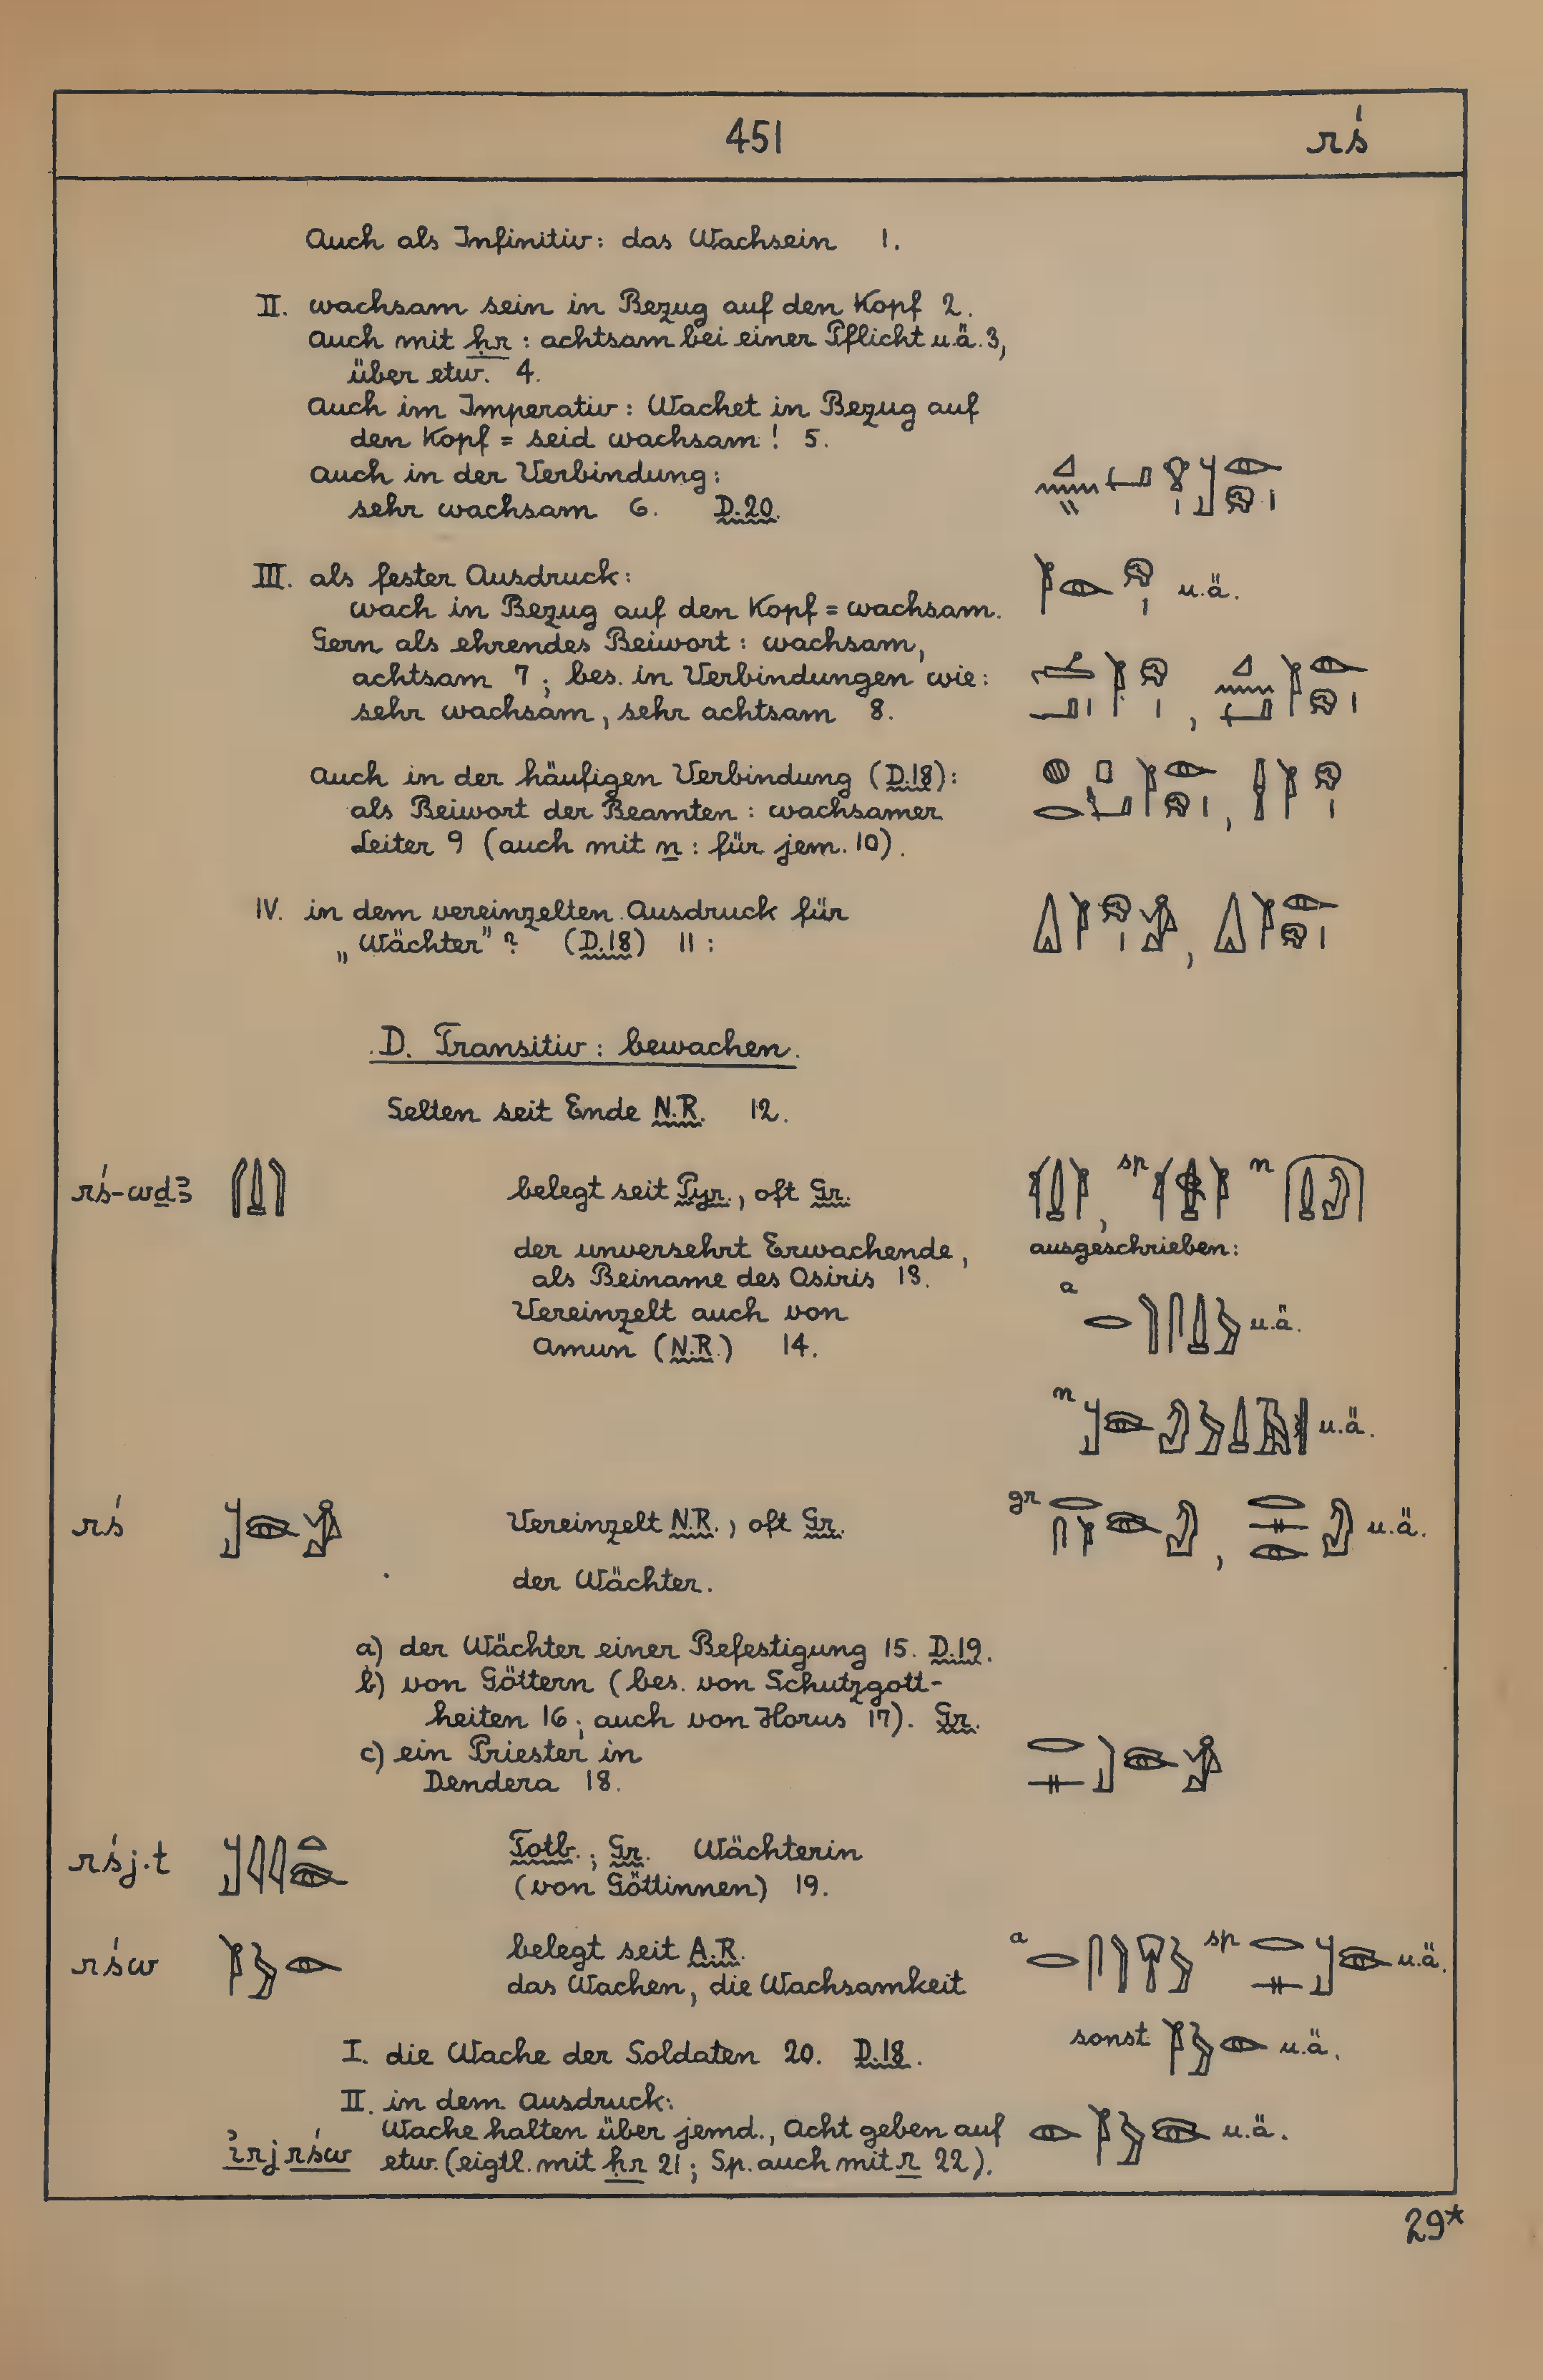 451 rś
Auch als Infinitiv: das Wachsein 1.
II. wachsam sein in Bezug auf den Kopf 2.
Auch mit ḥr : achtsam bei einer Pflicht u.ä. 3,
über etw. 4.
Auch im Imperativ: Wachet in Bezug auf
den Kopf = seid wachsam! 5.
Auch in der Verbindung:
sehr wachsam 6. D.20.
III. als fester Ausdruck:
wach in Bezug auf den Kopf = wachsam. u.ä.
Gern als ehrendes Beiwort: wachsam,
achtsam 7; bes. in Verbindungen wie:
sehr wachsam, sehr achtsam 8.
Auch in der häufigen Verbindung (D.18):
als Beiwort der Beamten: wachsamer
Leiter 9 (auch mit n : für jem. 10).
IV. in dem vereinzelten Ausdruck für
„Wächter"? (D.18) 11:
D. Transitiv: bewachen.
Selten seit Ende N.R. 12.
rś-wḏꜣ belegt seit Pyr., oft Gr. sp n
der unversehrt Erwachende, ausgeschrieben:
als Beiname des Osiris 13. a
Vereinzelt auch von u.ä.
Amun (N.R.) 14.
n u.ä.
rś Vereinzelt N.R., oft Gr. gr u.ä.
der Wächter.
a) der Wächter einer Befestigung 15. D.19.
b) von Göttern (bes. von Schutzgott-
heiten 16; auch von Horus 17). Gr.
c) ein Priester in
Dendera 18.
rśj.t Totb.; Gr. Wächterin
(von Göttinnen) 19.
rśw belegt seit A.R. a sp u.ä.
das Wachen, die Wachsamkeit
I. die Wache der Soldaten 20. D.18. sonst u.ä.
II. in dem Ausdruck:
Wache halten über jemd., Acht geben auf u.ä.
ỉrj rśw etw. (eigtl. mit ḥr 21; Sp. auch mit r 22).
29*